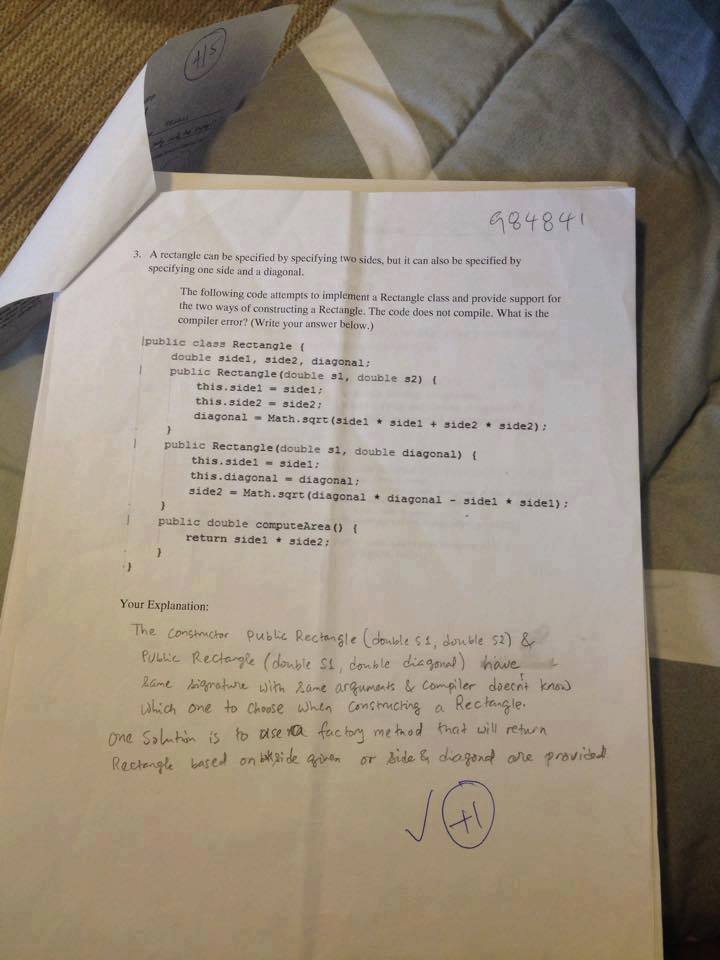 +15
984841
3. A rectangle can be specified by specifying two sides, but it can also be specified by
specifying one side and a diagonal.
The following code attempts to implement a Rectangle class and provide support for
the two ways of constructing a Rectangle. The code does not compile. What is the
compiler error? (Write your answer below.)
public class Rectangle {
double side1, side2, diagonal;
public Rectangle(double s1, double s2) {
this.side1 = side1;
this.side2 = side2;
diagonal = Math.sqrt(side1 * side1 + side2 * side2);
}
public Rectangle(double s1, double diagonal) {
this.side1 = side1;
this.diagonal = diagonal;
side2 = Math.sqrt(diagonal * diagonal - side1 * side1);
}
public double computeArea() {
return side1 * side2;
}
}
Your Explanation:
The constructor Public Rectangle (double s1, double s2) &
Public Rectangle (double s1, double diagonal) have
same signature with same arguments & compiler doesn't know
which one to choose when constructing a Rectangle.
One Solution is to use a factory method that will return
Rectangle based on side given or side & diagonal are provided.
✓ +1